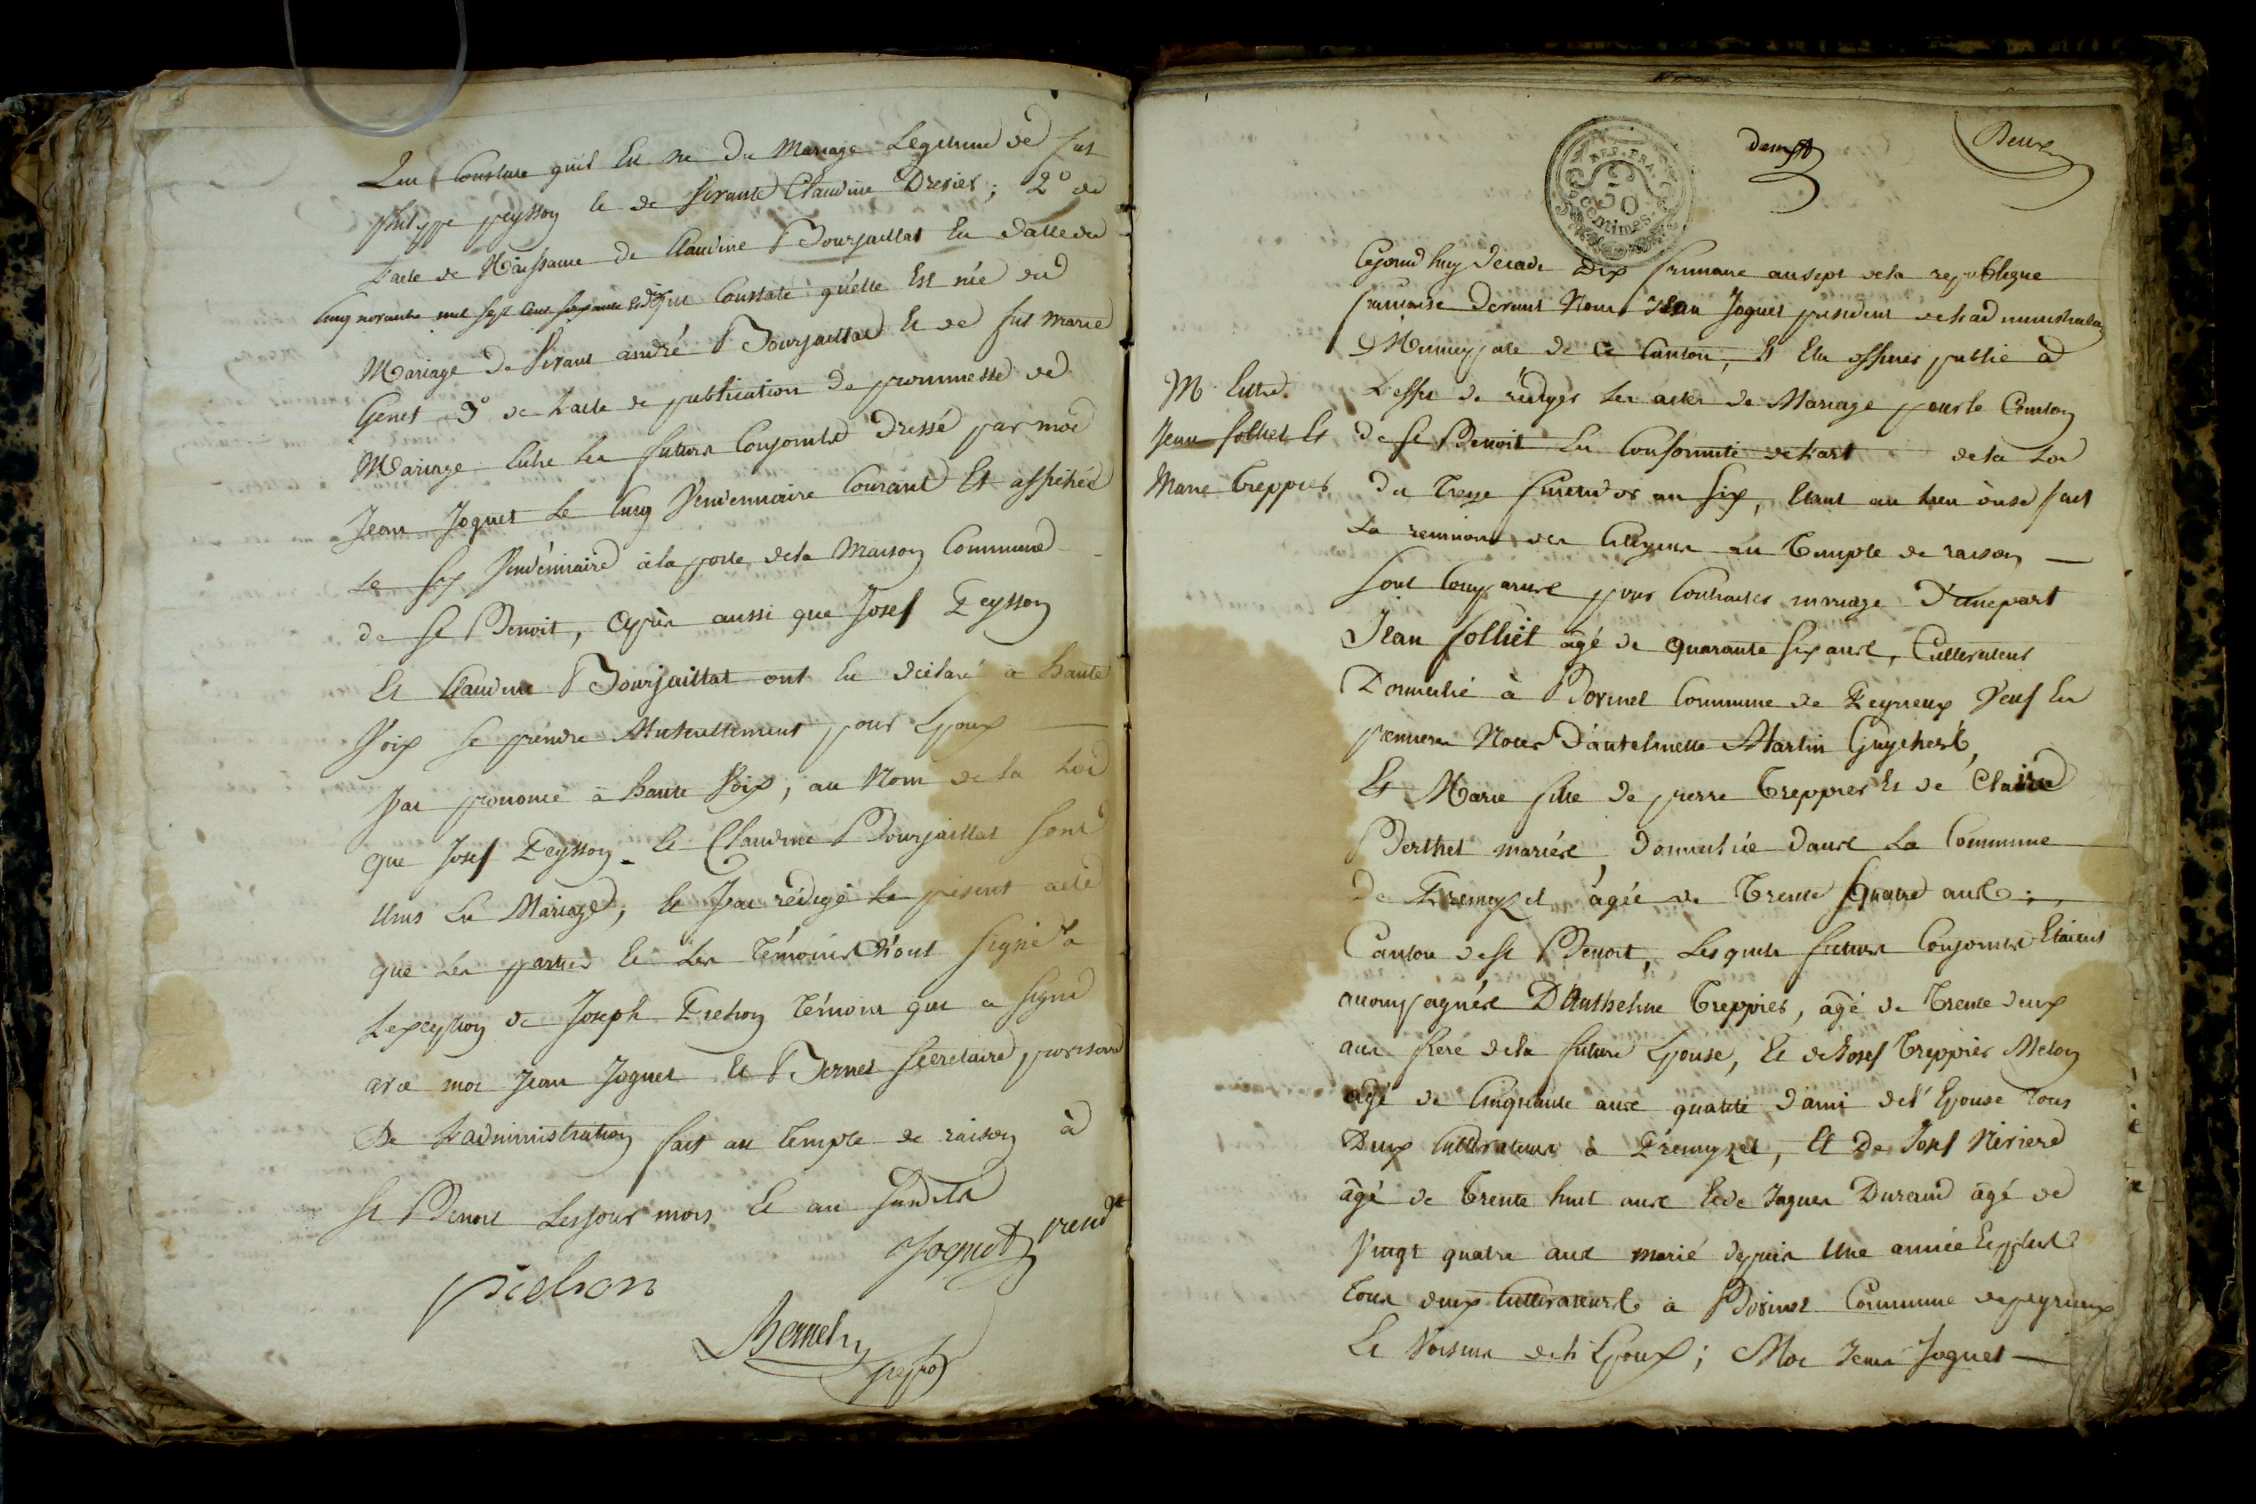 qui constate quil est né du mariage Légitime de fut
philippe peysson et de vivante Claudine Drevet; 2° de
L'acte de Naissance de Claudine Bourjaillat en datte du
cinq novembre mil sept cent soixante et dix qui constate quélle est née du
Mariage de vivant andré Bourjaillat et de fut marie
Genet 3° de Lacte de publication de prommesse de
Mariage entre les futurs conjoints dressé par moi
Jean Joguet le cinq vendemiaire courant et affiché
le six vendémiaire à la porte de la maison commune
de st Benoit, après aussi que Josef Peysson
et Claudine Bourjaillat ont eu déclaré a haute
voix se prendre Mutuellement pour Epoux
j'ai prononcé à haute voix, au Nom de la Loi
que Josef Peysson et Claudine Bourjaillat sont
unis en Mariage, et j'ai rédigé le présent acte
que les parties et les témoins n'ont signé à
L'exception de Joseph témoin qui a signé
avec moi Jean Joguet et Bernet secretaire provisoire
De L'administration fait au temple de raison à
st Benoit les jour mois et an susdits
Joguet presidt
Bernet
50 centimes.
Deux
Cejourdhuy decadi dix frimaire an sept de la republique
francaise devant Nous Jean Joguet president de Ladministration
Municipale de ce canton, et élu officier public à
L'effet de rédiger les actes de Mariage pour le Canton
M. Entre
Jean folliet et
Marie Treppier
de st Benoit en conformité de Lart de la Loi
du treize fructidor an six, étant au lieu où se fait
la reunion des citoyens au Temple de raison
sont comparus pour contracter mariage D'une part
Jean folliet agé de quarante six ans, Cultivateur
Domicilié à commune de Peyrieux veuf en
premiere Noces D'antelmette Martin
Et Marie fille de pierre Treppier et de Claire
Berthet mariés, domiciliée dans la Commune
de âgée de Trente quatre ans;
Canton de st Benoit, Lesquels futurs conjoints étaient
accompagnés D'Anthelme Treppier, âgé de Trente deux
ans frere de la future Epouse, et de Josef Treppier
agé de cinquante ans qualité d'ami de l'Epouse tous
Deux cultivateurs à et De Josef
âgé de Trente huit ans et de Jaques Durand âgé de
vingt quatre ans marié depuis une année et plus
tous deux cultivateurs à Commune de peyrieux
et voisins de l'Epoux; Moi Jean Joguet